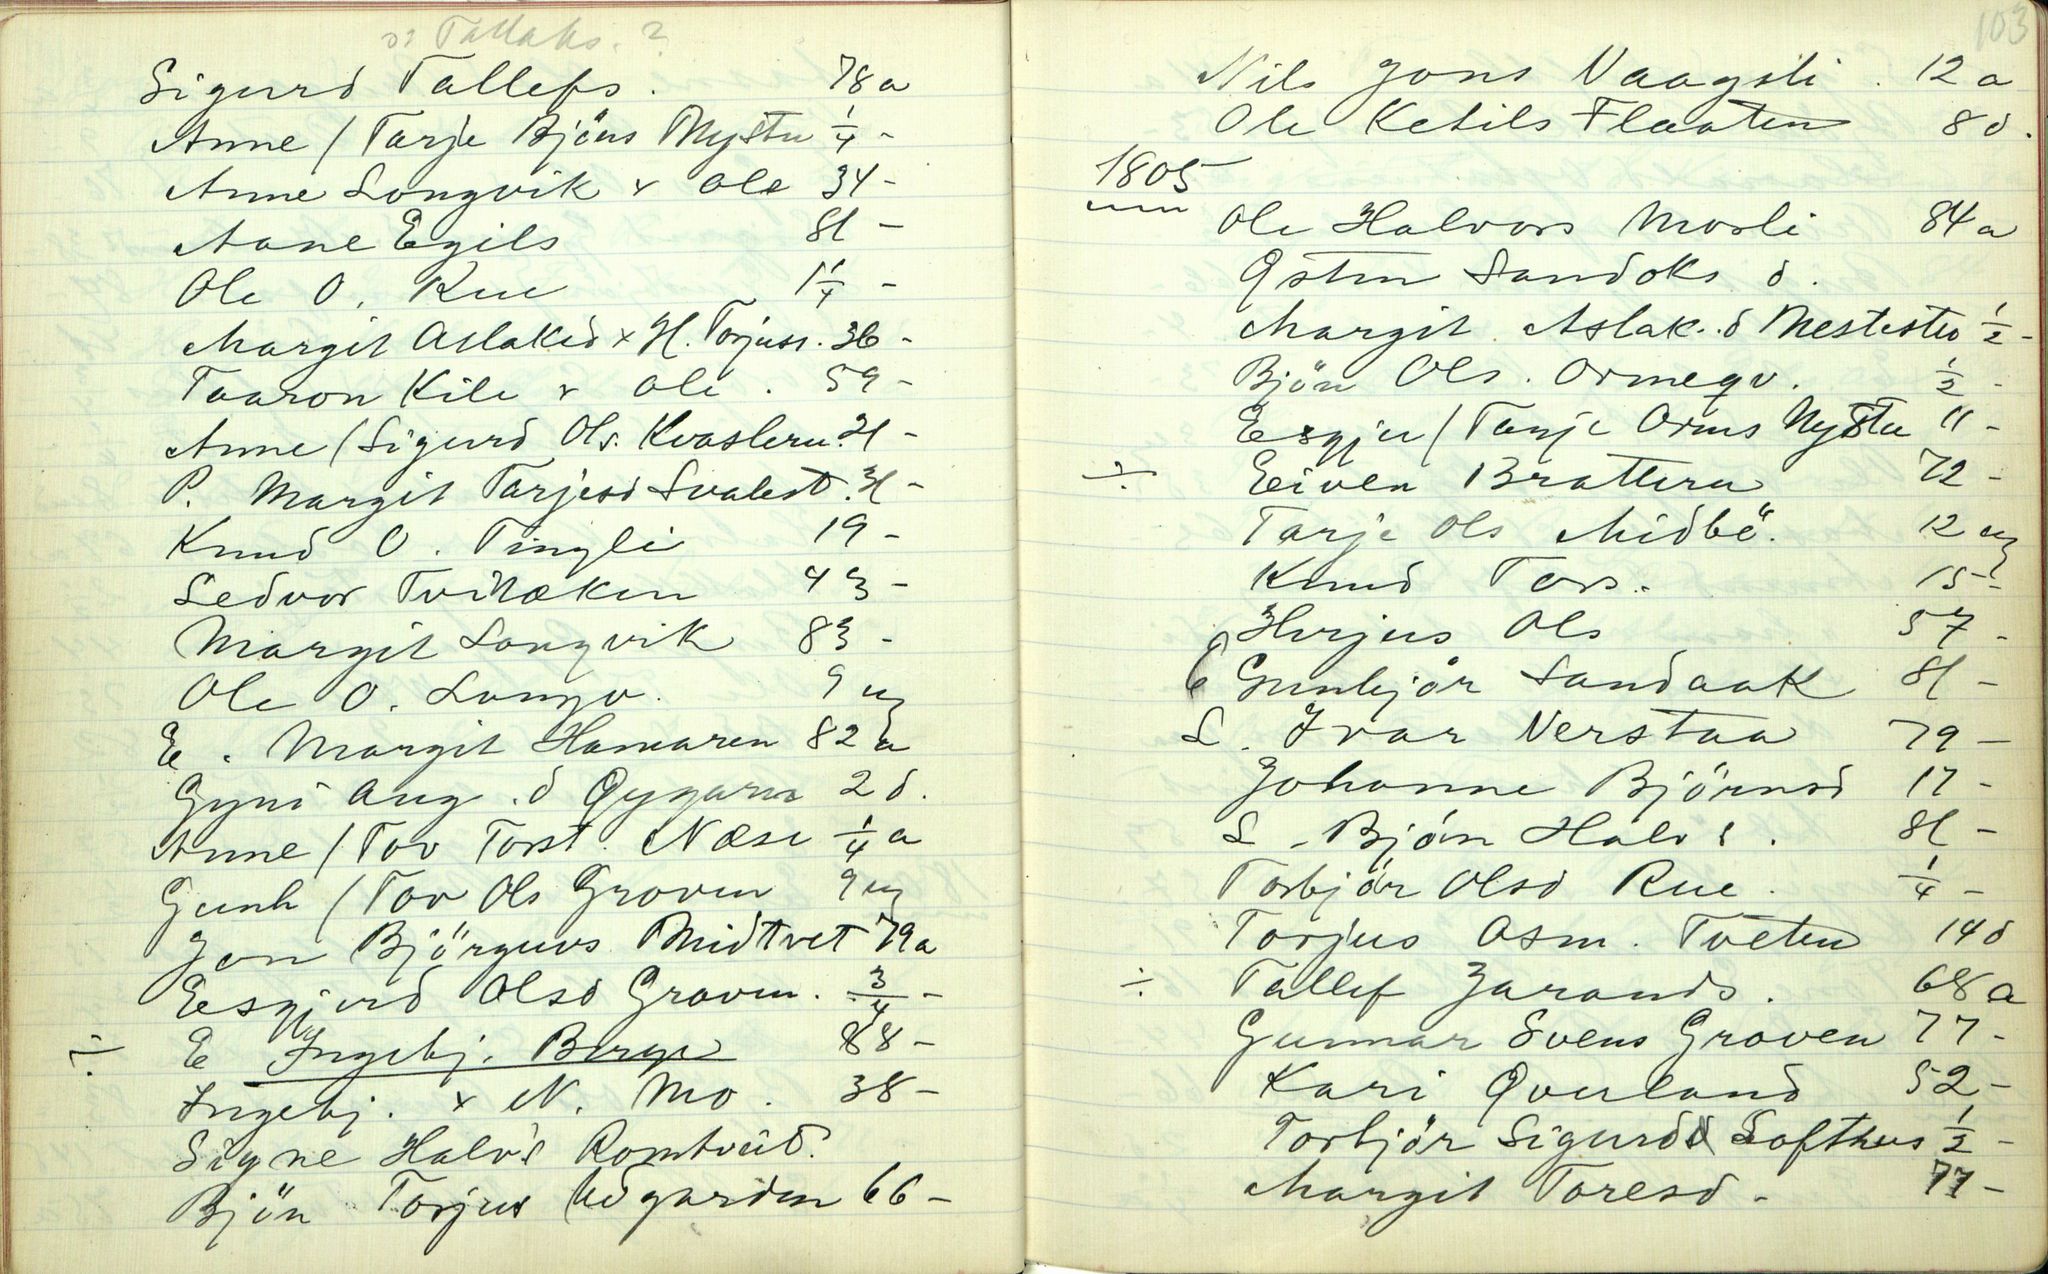 ɔ: Tallaks. ?
Sigurd Tallefs. 78 a
Anne / Tarje Bjöns Nystu 1/4 -
Anne Longvik x Ole 34 -
Aane Egils 81 -
Ole O. Rue 1 1/4 -
Margit Aslaksd x H. Torjuss. 36 -
Taaron Kile x Ole. 59 -
Anne / Sigurd Ols. Kvasleru 31 -
P. Margit Tarjesd Svalest. 31 -
Knud O. Tingli 19 -
Ledvor Tvitækin 43 -
Margit Longvik 83 -
Ole O. Longv. 9 ug
E. Margit Hamaren 82 a
Gyni Aug. d Öygarn 2 d.
Anne / Tov Torst. Næse 1/4 a
Gunh / Tov Ols Groven 9 ug
Jon Björguvs Midtvet 79 a
Eesgjerd Olsd Groven. 3/4 -
÷ E Ingebj. Berge 88 -
Ingebj. x N. Mo. 38 -
Signe Halvs Romtveit.
Bjön Torjus Udgarden 66 -
103
Nils Jons Vaagsli. 12 a
Ole Ketils Flaaten 8 d.
1805
Ole Halvors Mosli 84 a
Östen Sandoks d.
Margit Aslak. d Nestestu 1/2 -
Bjön Ols. Ormegv. 1/2 -
Esgju / Tarje Orms Nystu 11 -
÷ Eiven Bratteru 72 -
Tarje Ols Midbö. 12 ug
Knud Tors. 15 -
Hvrjus Ols 57 -
E Gunbjör Sandaak 81 -
L. Ivar Nerstaa 79 -
Johanne Björnsd 17 -
L. Bjön Halvs. 81 -
Torbjör Olsd Rue. 1/4 -
Torjus Asm. Tveten 14 d
÷ Tallef Jarands. 68 a
Gunnar Svens Groven 77 -
Kari Överland 52 -
Torbjör Sigurdsd Lofthus 1/2 -
Margit Toresd - 77 -